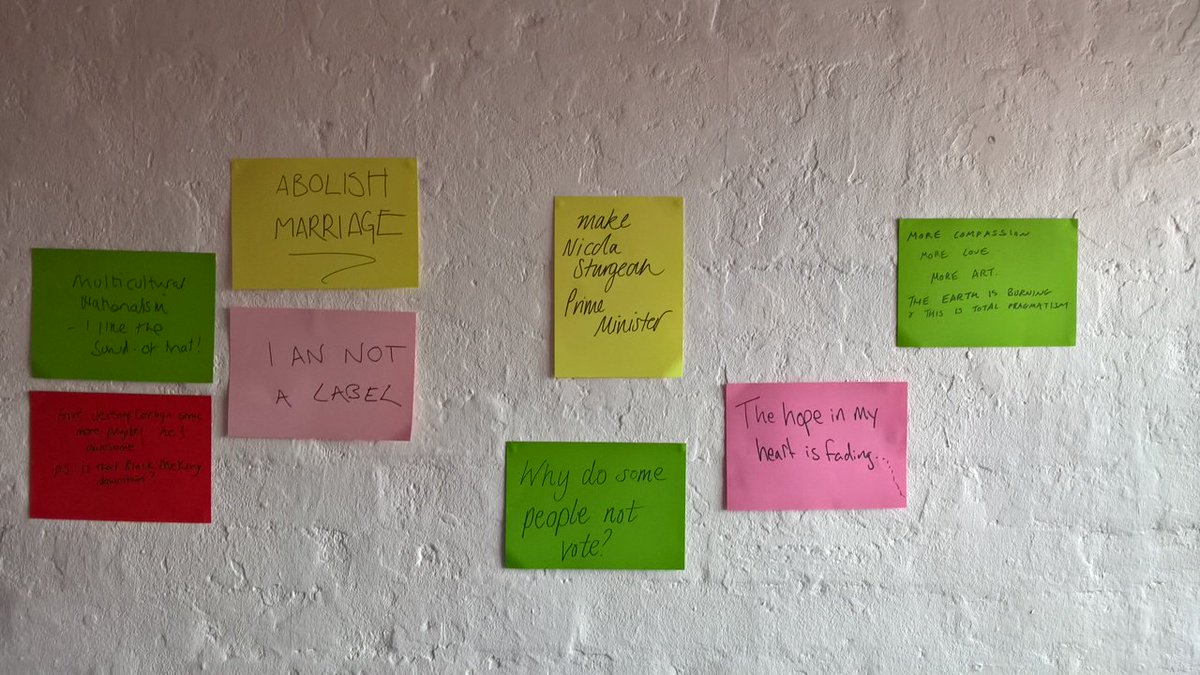 ABOLISH
MARRIAGE
Multicultural
Nationalism
- I like the
sound of that!
I AN NOT
A LABEL
Give Jeremy Corbyn some
more
awesome
PS: is that
downtown
make
Nicola
Sturgeon
Prime
Minister
Why do some
people not
vote?
The hope in my
heart is fading...
MORE COMPASSION
MORE LOVE
MORE ART.
THE EARTH IS BURNING
& THIS IS TOTAL PRAGMATISM